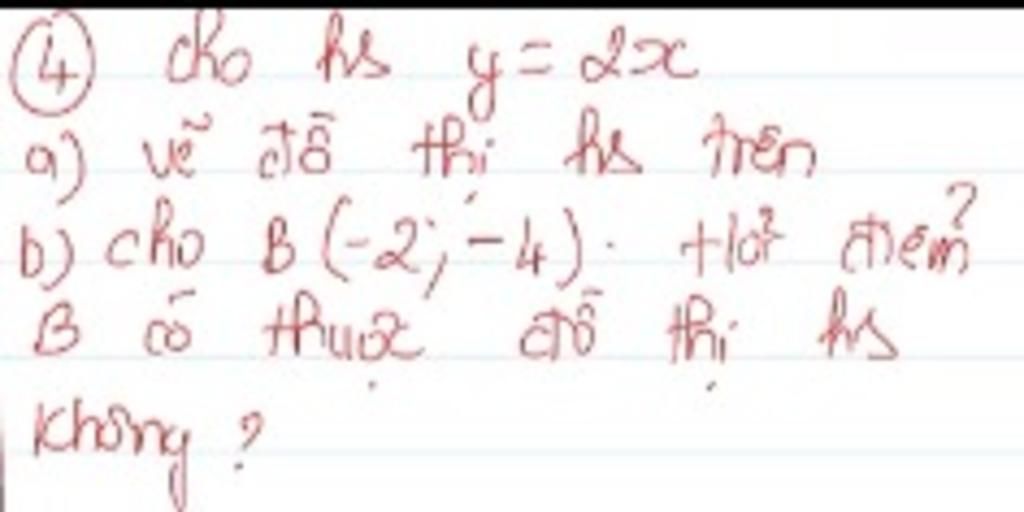 ④ cho hs y = 2x
a) vẽ đồ thị hs trên
b) cho B (-2; -4). Hỏi điểm
B có thuộc đồ thị hs
không ?